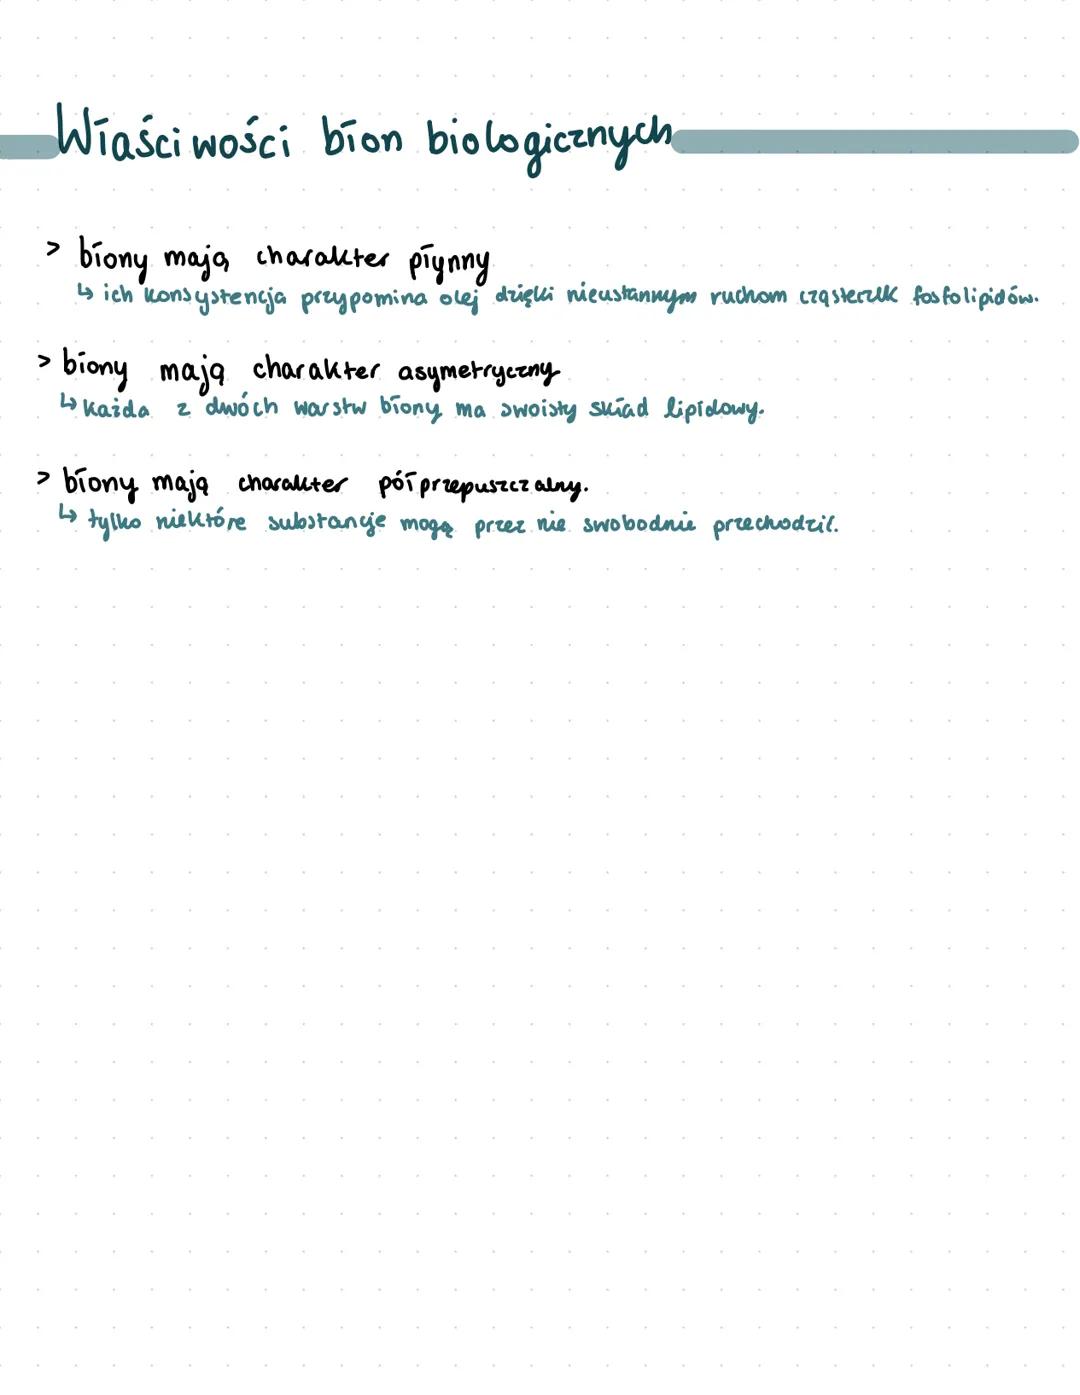 Właściwości błon biologicznych
> błony mają charakter płynny
↳ ich konsystencja przypomina olej dzięki nieustannym ruchom cząsteczek fosfolipidów.
> błony mają charakter asymetryczny
↳ każda z dwóch warstw błony ma swoisty skład lipidowy.
> błony mają charakter półprzepuszczalny.
↳ tylko niektóre substancje mogą przez nie swobodnie przechodzić.